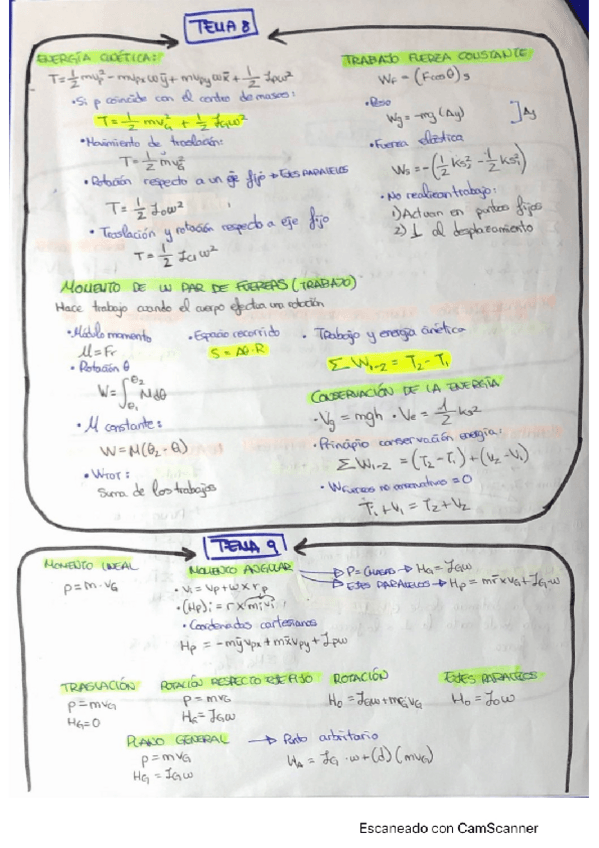 TEMA 8
ENERGÍA CINÉTICA:
T = 1/2 mv_p² - mv_px ω ȳ + mv_py ω x̄ + 1/2 I_P ω²
• Si p coincide con el centro de masas:
T = 1/2 mv_G² + 1/2 I_G ω²
• Movimiento de traslación:
T = 1/2 mv_G²
• Rotación respecto a un eje fijo → EJES PARALELOS
T = 1/2 I_O ω²
• Traslación y rotación respecto a eje fijo
T = 1/2 I_CI ω²
TRABAJO FUERZA CONSTANTE
W_F = (F cos θ) s
• Peso
W_g = -mg (Δy) ] Δy
• Fuerza elástica
W_s = -(1/2 ks₂² - 1/2 ks₁²)
• No realizan trabajo:
1) Actúan en puntos fijos
2) ⊥ al desplazamiento
MOMENTO DE UN PAR DE FUERZAS (TRABAJO)
Hace trabajo cuando el cuerpo efectúa una rotación
• Módulo momento
M = Fr
• Espacio recorrido
S = Δθ·R
• Rotación θ
W = ∫θ₁^θ₂ M dθ
• M constante:
W = M(θ₂ - θ₁)
• W_TOT:
Suma de los trabajos
• Trabajo y energía cinética
Σ W₁₋₂ = T₂ - T₁
CONSERVACIÓN DE LA ENERGÍA
• V_g = mgh • V_e = 1/2 ks²
• Principio conservación energía:
Σ W₁₋₂ = (T₂ - T₁) + (V₂ - V₁)
• W_Fuerzas no conservativas = 0
T₁ + V₁ = T₂ + V₂
TEMA 9
MOMENTO LINEAL
p = m · v_G
MOMENTO ANGULAR
• v_i = v_p + ω × r_p
• (H_p)_i = r × m_i v_i
• Coordenadas cartesianas
H_p = -mȳv_px + mx̄v_py + I_P ω
→ H_G = I_G ω
→ EJES PARALELOS → H_p = m r̄ × v_G + I_G · ω
TRASLACIÓN
p = mv_G
H_G = 0
ROTACIÓN RESPECTO EJE FIJO
p = mv_G
H_G = I_G ω
ROTACIÓN
EJES PARALELOS
H_O = I_O ω
PLANO GENERAL → Punto arbitrario
p = mv_G
H_G = I_G ω
H_A = I_G · ω + (d) (mv_G)
Escaneado con CamScanner